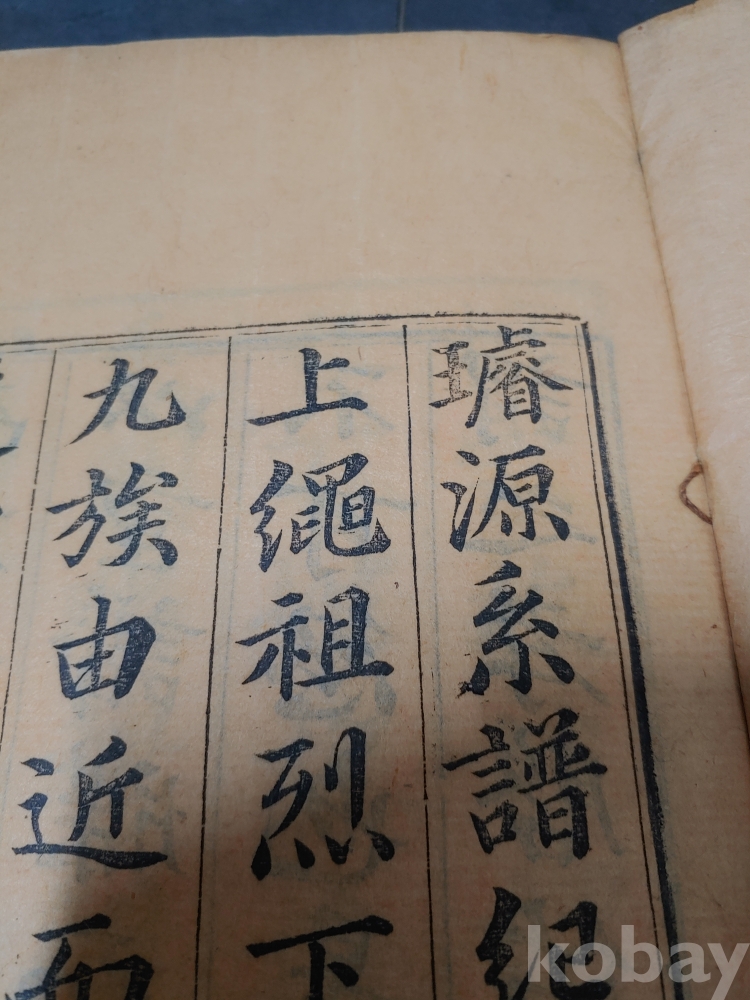 璿源系譜紀
上繩祖烈下
九族由近而
kobay